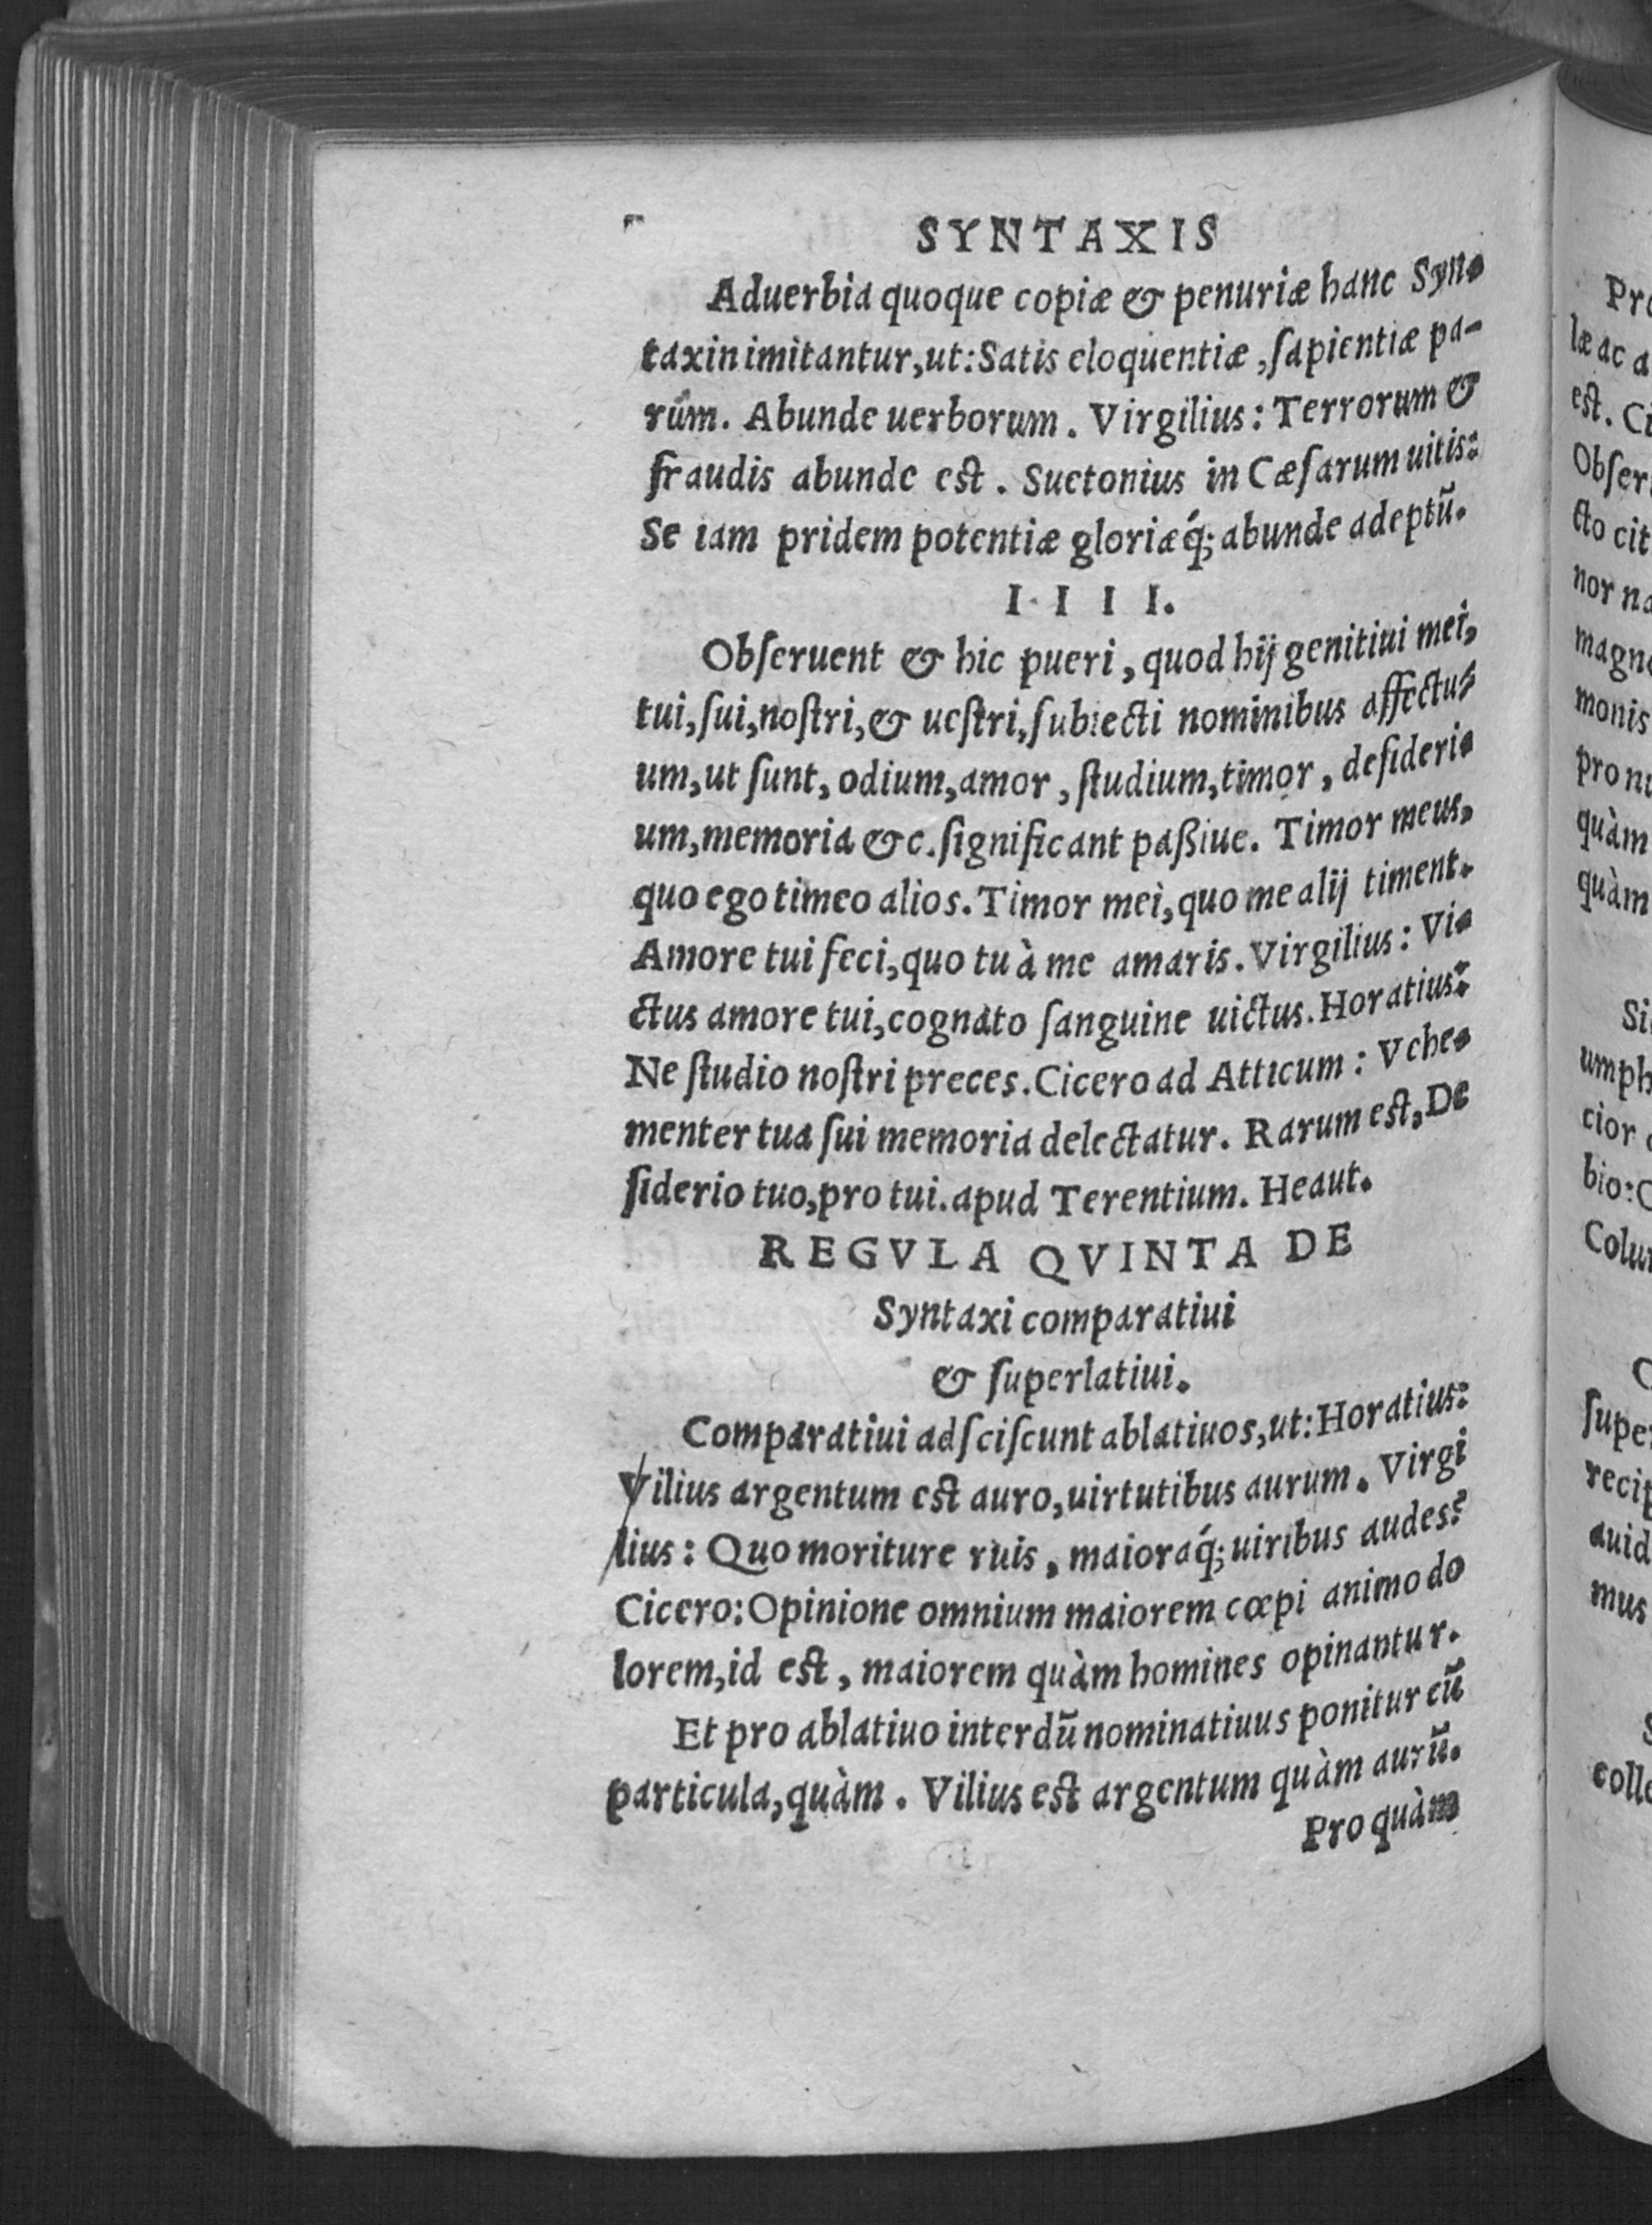 SYNTAXIS
Aduerbia quoque copiæ & penuriæ hanc Syn-
taxin imitantur, ut: Satis eloquentiæ, ſapientiæ pa-
rùm. Abunde uerborum. Virgilius: Terrorum &
fraudis abunde est. Suetonius in Cæſarum uitis:
Se iam pridem potentiæ gloriæq́; abunde adeptũ.
I I I I.
Obſeruent & hic pueri, quod hij genitiui mei,
tui, ſui, noſtri, & ueſtri, ſubiecti nominibus affectu-
um, ut ſunt, odium, amor, ſtudium, timor, deſideri-
um, memoria &c. ſignificant paßiue. Timor meus,
quo ego timeo alios. Timor mei, quo me alij timent.
Amore tui feci, quo tu à me amaris. Virgilius: Vi-
ctus amore tui, cognato ſanguine uictus. Horatius:
Ne ſtudio noſtri preces. Cicero ad Atticum: Vehe-
menter tua ſui memoria delectatur. Rarum est, De
ſiderio tuo, pro tui. apud Terentium. Heaut.
REGVLA QVINTA DE
Syntaxi comparatiui
& ſuperlatiui.
Comparatiui adſciſcunt ablatiuos, ut: Horatius:
Vilius argentum est auro, uirtutibus aurum. Virgi
lius: Quo moriture ruis, maioraq́; uiribus audes?
Cicero: Opinione omnium maiorem cœpi animo do
lorem, id est, maiorem quàm homines opinantur.
Et pro ablatiuo interdũ nominatiuus ponitur cũ
particula, quàm. Vilius est argentum quàm aurũ.
Pro quàm
Pro
læ ac a
est. Ci
Obſer
cto cit
nor na
magno
monis
pro nu
quàm
quàm
Si
umph
cior
bio: C
Colu
C
ſuper
recip
auid
mus
S
colle